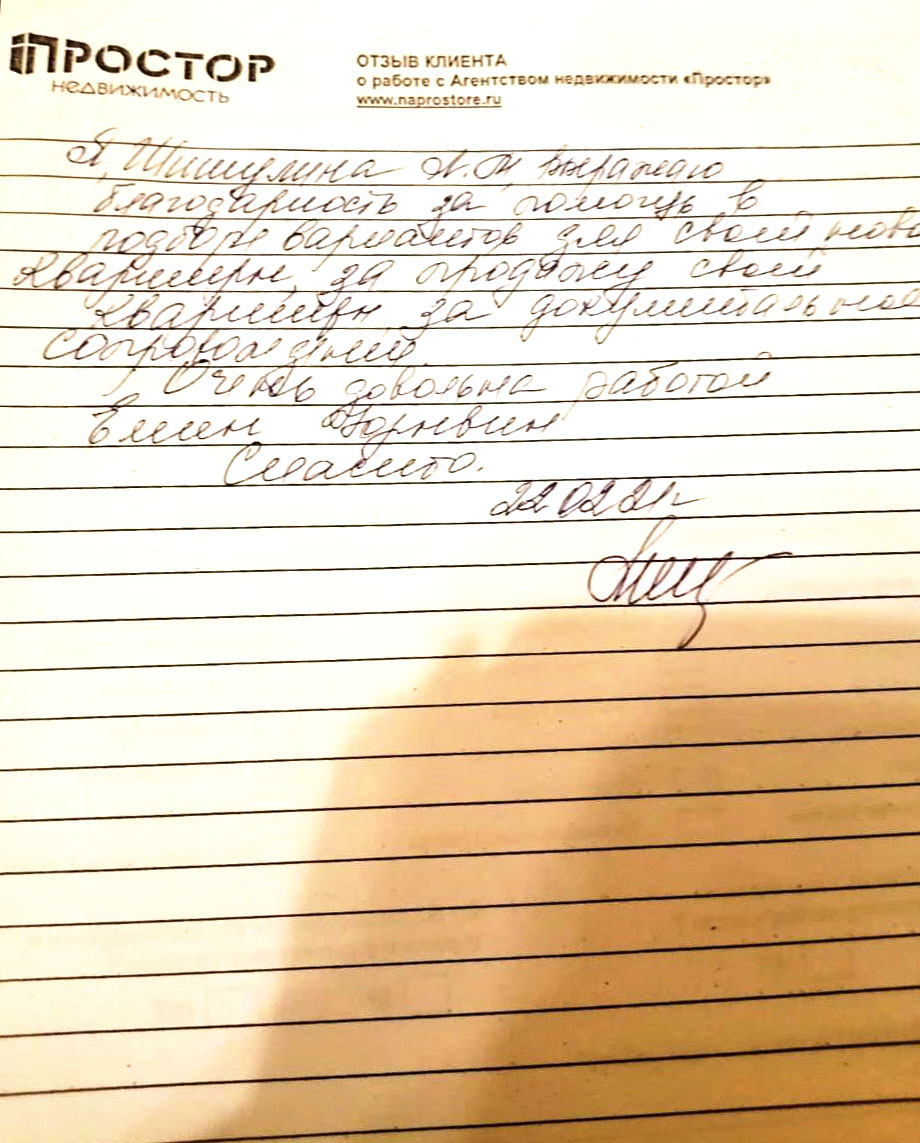 ПРОСТОР
недвижимость
ОТЗЫВ КЛИЕНТА
о работе с Агентством недвижимости «Простор»
www.naprostore.ru
Я, Шишулина А. М, выражаю
благодарность за помощь в
подборе вариантов для своей ново
квартиры, за продажу своей
квартиры, за документальное
сопровождение
Очень довольна работой
Спасибо.
22.02.21г